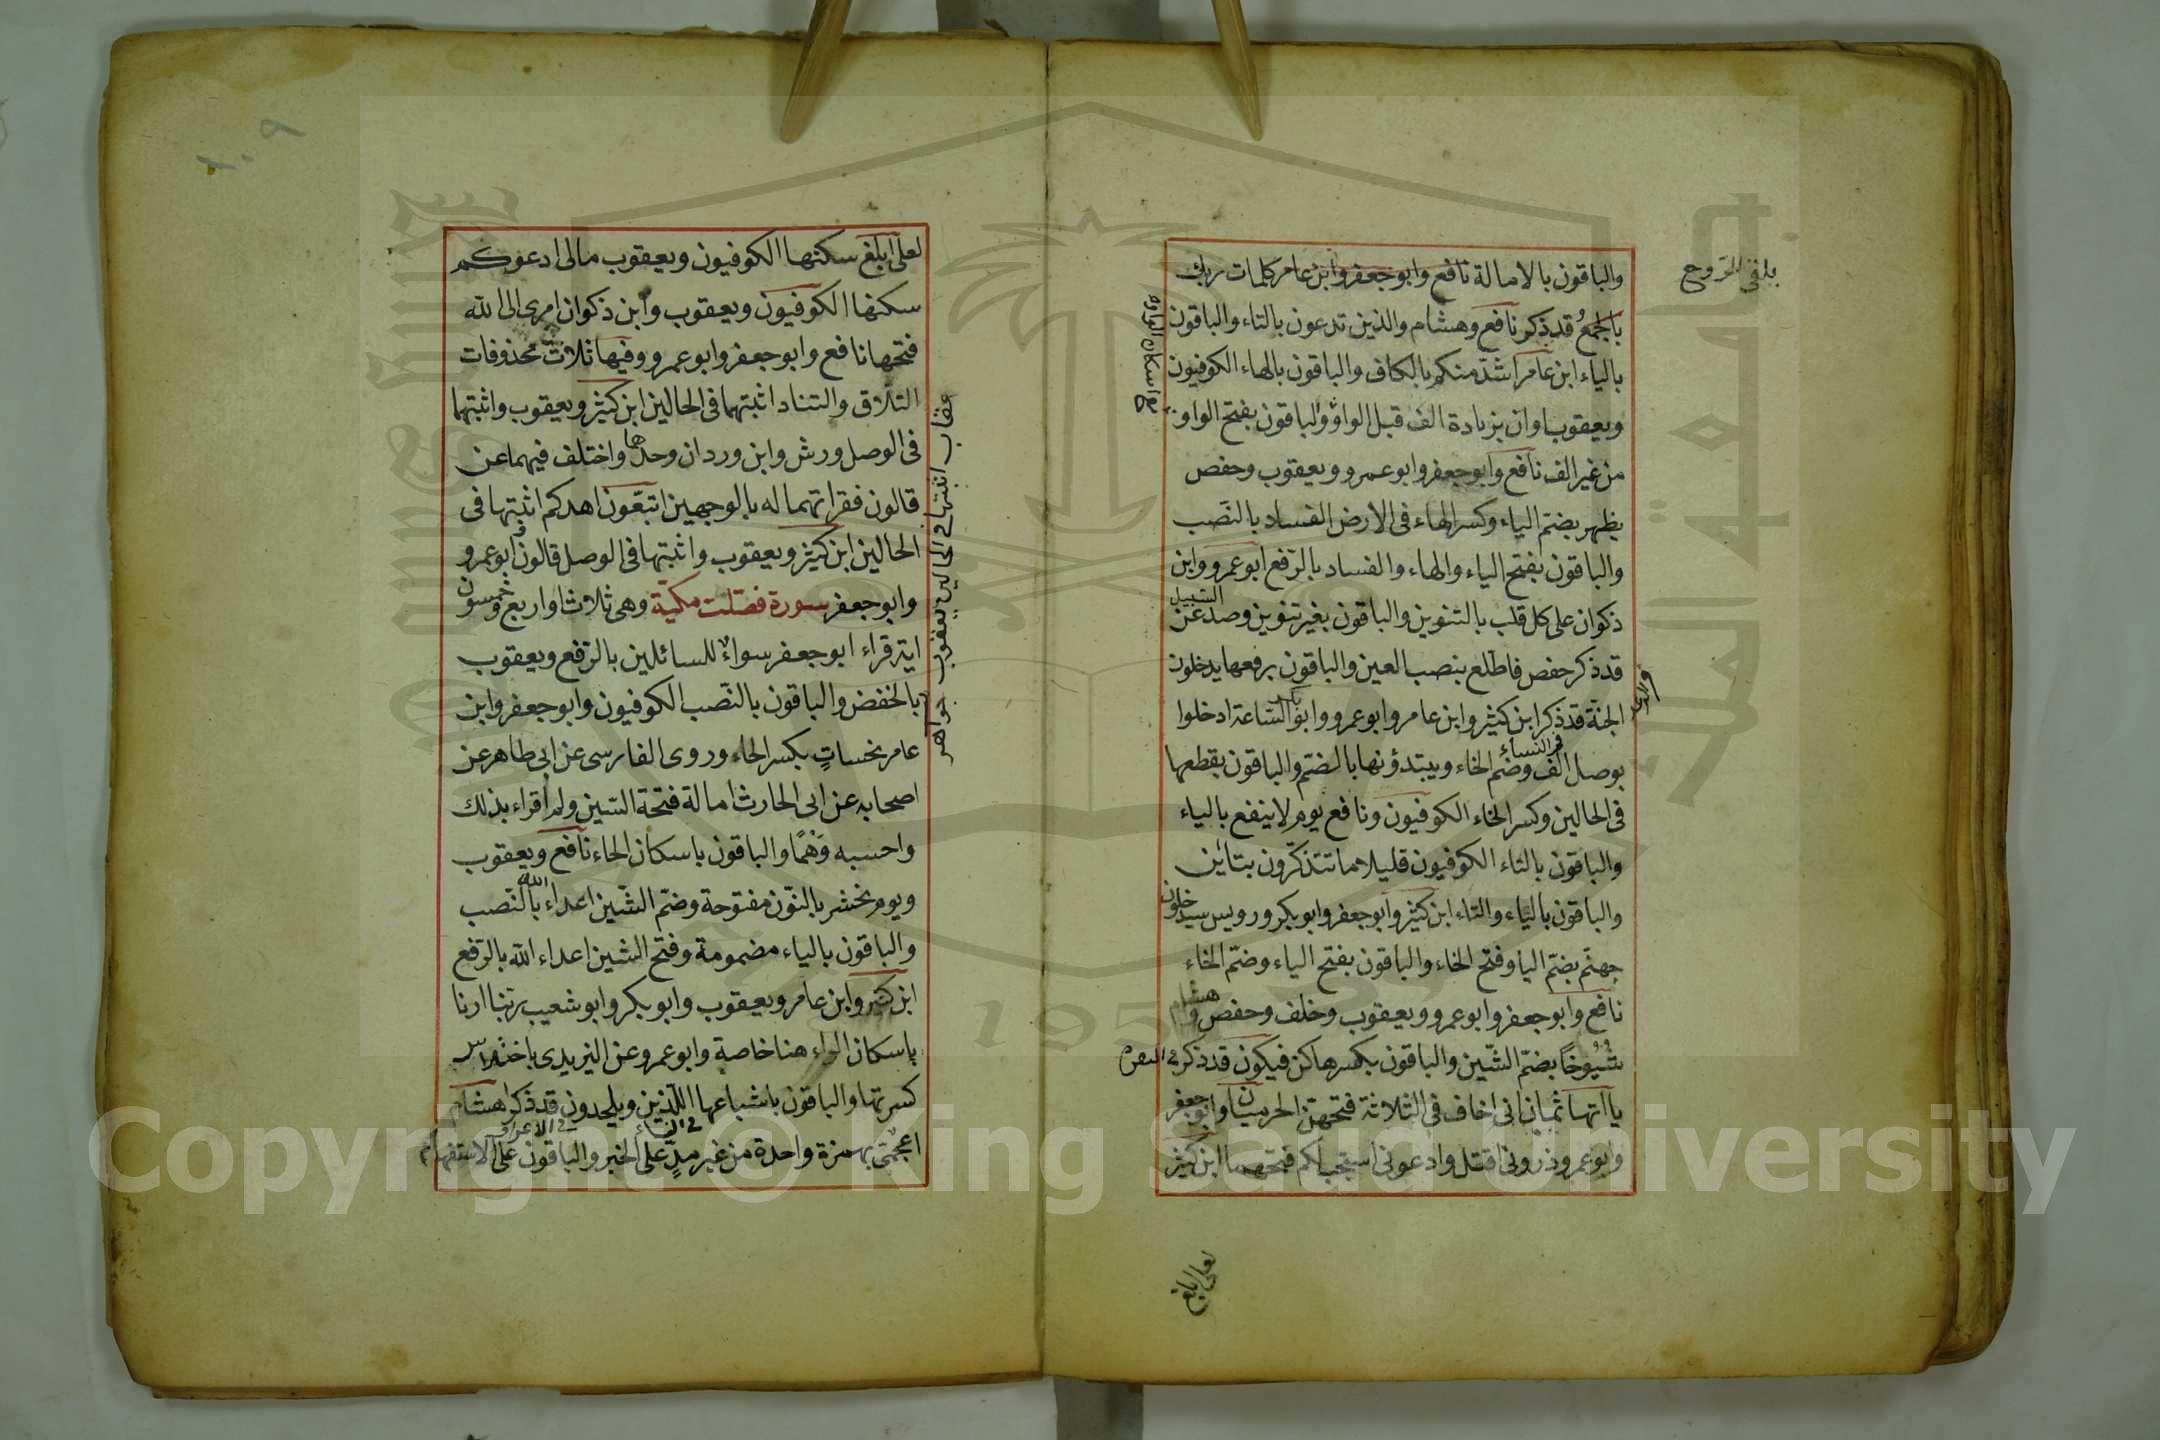 والباقون بالامالة نافع وابو جعفر وابن عامر كلمات ربك
بالجمع قد ذكر نافع وهشام والذين تدعون بالتاء والباقون
بالياء ابن عامر اشد منكم بالكاف والباقون بالهاء الكوفيون
ويعقوب او ان بزيادة الف قبل الواو والباقون بفتح الواو
من غير الف نافع وابو جعفر وابو عمرو ويعقوب وحفص
يظهر بضم الياء وكسر الهاء فى الارض الفساد بالنصب
والباقون بفتح الياء والهاء والفساد بالرفع ابو عمرو وابن
ذكوان على كل قلب بالتنوين والباقون بغير تنوين وصد عن السبيل
قد ذكر حفص فاطلع بنصب العين والباقون برفعها يدخلون
الجنة قد ذكر ابن كثير وابن عامر وابو عمرو وابو بكر الساعة ادخلوا
فى النساء
بوصل الف وضم الخاء ويبتدؤنها بالضم والباقون بقطعها
فى الحالين وكسر الخاء الكوفيون ونافع يوم لا ينفع بالياء
والباقون بالتاء الكوفيون قليلا ما تتذكرون بتائين
والباقون بالياء والتاء ابن كثير وابو جعفر وابو بكر ورويس سيدخلون
جهنم بضم اليا وفتح الخاء والباقون بفتح الياء وضم الخاء
نافع وابو جعفر وابو عمرو ويعقوب وخلف وحفص وهشام
شُيُوخًا بضم الشين والباقون بكسرها كن فيكون قد ذكر فى البقرة
يا آتها ثمان انى اخاف فى الثلاثة فتحهن الحرميان وابو جعفر
وابو عمرو ذرونى اقتل وادعونى استجب لكم فتحهما ابن كثير
مع اسكان الواو
لعلى ابلغ
لعلى ابلغ سكنها الكوفيون ويعقوب مالى ادعوكم
سكنها الكوفيون ويعقوب وابن ذكوان امرى الى الله
فتحها نافع وابو جعفر وابو عمرو وفيها ثلاث محذوفات
التلاق والتناد اثبتهما فى الحالين ابن كثير ويعقوب واثبتهما
فى الوصل ورش وابن وردان وحدها واختلف فيهما عن
قالون فقراتهما له بالوجهين اتبعون اهدكم اثبتها فى
الحالين ابن كثير ويعقوب واثبتها فى الوصل قالون وابو عمرو
وابو جعفر سورة فصلت مكية وهى ثلاث او اربع وخمسون
اية قراء ابو جعفر سواء للسائلين بالرفع ويعقوب
بالخفض والباقون بالنصب الكوفيون وابو جعفر وابن
عامر نحسات بكسر الحاء وروى الفارسى عن ابى طاهر عن
اصحابه عن ابى الحارث امالة فتحة السين ولم اقراء بذلك
واحسبه وَهْمًا والباقون باسكان الحاء نافع ويعقوب
ويوم نحشر بالنون مفتوحة وضم الشين اعداء الله بالنصب
والباقون بالياء مضمومة وفتح الشين اعداء الله بالرفع
ابن كثير وابن عامر ويعقوب وابو بكر وابو شعيب ربنا ارنا
باسكان الراء هنا خاصة وابو عمرو عن اليزيدى باختلاس
كسرتها والباقون باشباعها اللذين ويلحدون قد ذكرا هشام
فى النساء فى الاعراف
اعجمى بهمزة واحدة من غير مد على الخبر والباقون على الاستفهام
عقاب اثبتها فى الحالين يعقوب جواهر
١٠٩
Copyright © King Saud University
1957